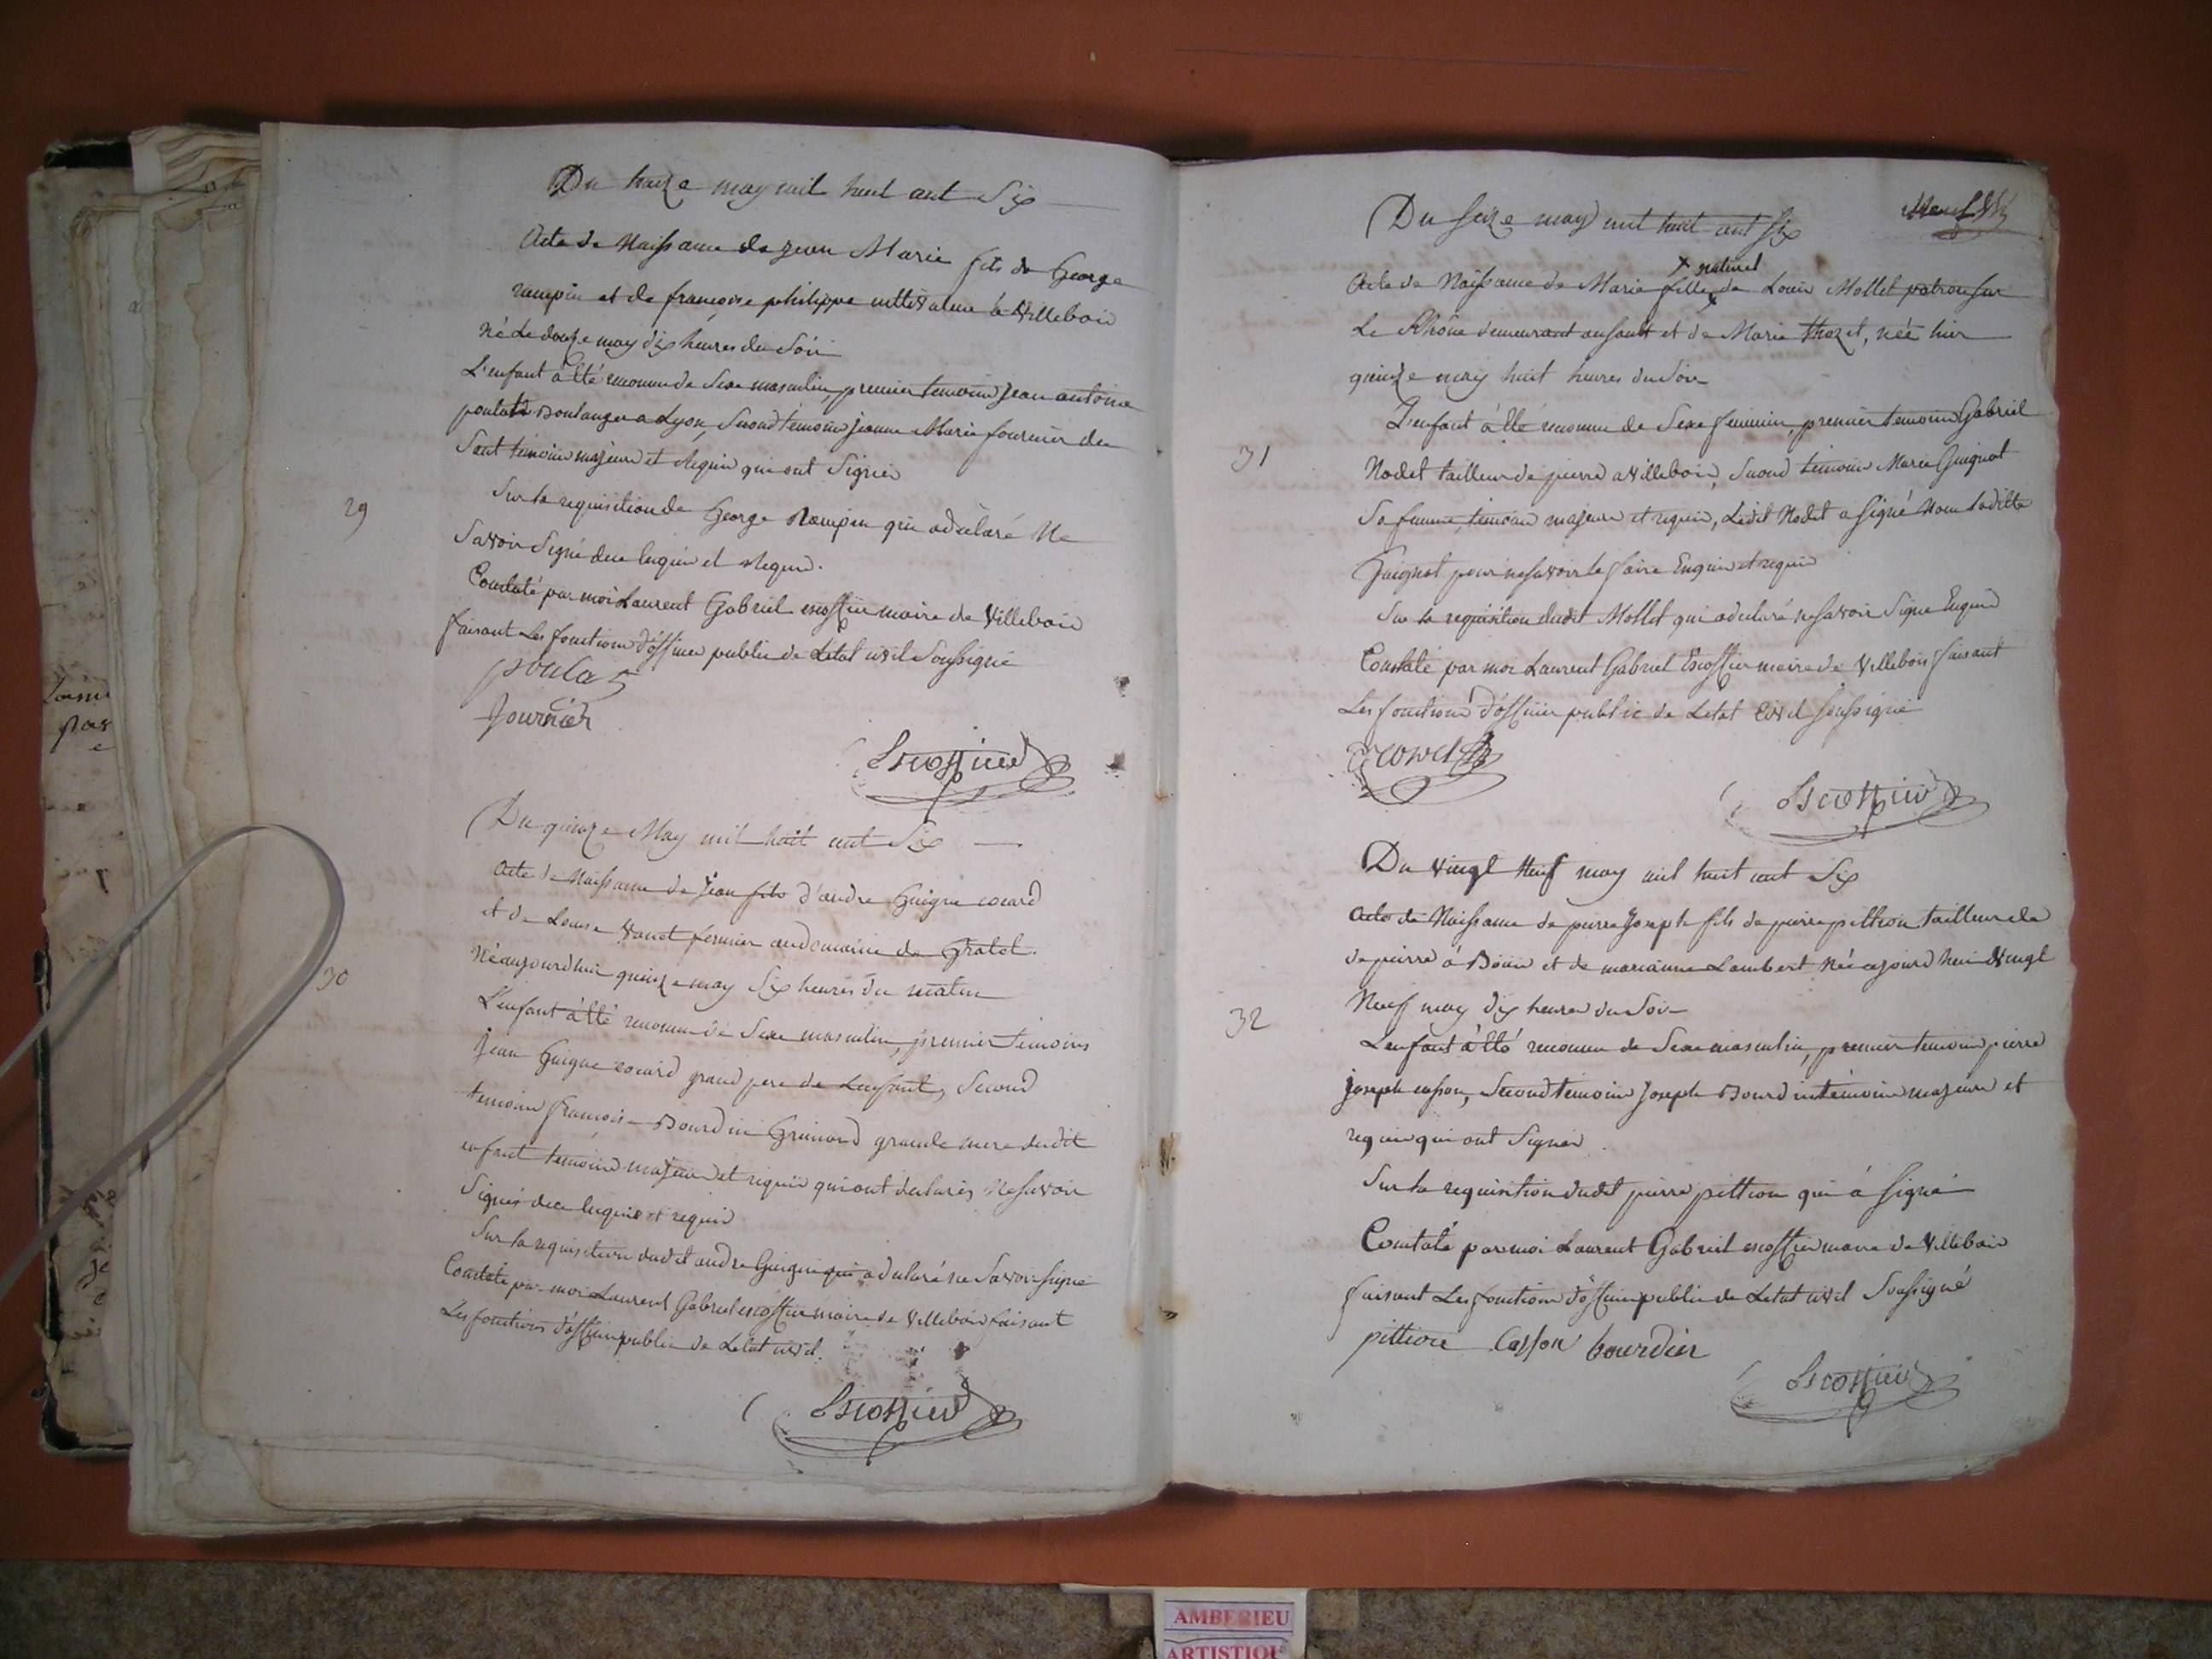 Du treize may mil huit cent Six
Acte de Naissance de jean Marie fils de George
rampin et de françoise philippe cultivateur à Villebois
Né Le douze may dix heures du Soir
L'enfant à été reconnu de Sexe masculin, premier temoin jean antoine
Boulanger a Lyon, Second témoin jeanne Marie fournier du
Saut témoins majeurs et Requis qui ont Signés
29
Sur la requisition de George Rampin qui a déclaré Ne
Savoir Signé de ce Enquis et Requis.
Constaté par moi Laurent Gabriel escoffier maire de Villebois
faisant Les fonctions d'officier public de Letat civil Soussigné
poulat
fournier
Escoffier
Du quinze May mil huit cent Six
Acte de Naissance de jean fils d'andré Guigue couard
et de Louise fermier au domaine de Gratet.
Né aujourdhui quinze may Six heures du matin
30
L'enfant à été reconnu de Sexe masculin, premier témoins
Jean Guigue couard grand pere de Lenfant, Second
temoins françoise Bourdin grande mere dudit
enfant temoins majeurs et requis qui ont declarés Ne Savoir
Signés de ce Enquis et requis
Sur la requisition dudit andré Guigue qui a declaré ne Savoir Signé
Constaté par moi Laurent Gabriel escoffier maire de Villebois faisant
Les fonctions d'officier public de Letat civil.
Escoffier
Neuf
Du Seize may mil huit cent Six
x naturel
Acte de Naissance de Marie fille x de Louis Mollet patron sur
Le Rhône demeurant au sault et de Marie thozet, née hier
quinze may huit heures du Soir
L'enfant à été reconnu de Sexe feminin, premier temoin Gabriel
31
Nodet tailleur de pierre a Villebois, Second témoin Marie Guignot
Sa femme, témoins majeurs et requis, Ledit Nodet a Signé Non Ladite
Guignot pour ne Savoir le faire Enquis et requis
Sur la requisition dudit Mollet qui a declaré ne Savoir Signe Enquis
Constaté par moi Laurent Gabriel Escoffier maire de Villebois faisant
Les fonctions d'officier public de Letat Civil Soussigné
Escoffier
Du Vingt Neuf may mil huit cent Six
Acte de Naissance de pierre Joseph fils de pierre pittion tailleur de
de pierre à Bouis et de marianne Lambert Né cejourd'hui Vingt
Neuf may dix heures du Soir
32
L'enfant à été reconnu de Sexe masculin, premier temoin pierre
joseph casson, Second temoin joseph Bourdin témoins majeurs et
requis qui ont Signés
Sur la requisition dudit pierre pittion qui à Signé
Constaté par moi Laurent Gabriel escoffier maire de Villebois
faisant Les fonctions d'officier public de Letat civil Soussigné
pittion Casson bourdin
Escoffier
AMBERIEU
ARTISTIQU